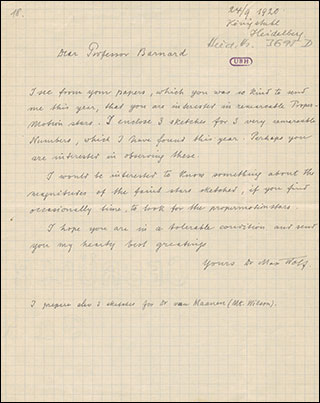 18.
24/9 1920
Königstuhl
Heidelberg
Heid. Hs. 3695 D
UBH
Dear Professor Barnard
I see from your papers, which you was so kind to send
me this year, that you are interested in remarcable Proper-
Motion stars. I enclose 3 sketches for 3 very remarcable
Numbers, which I have found this year. Perhaps you
are interested in observing these.
I would be interested to know something about the
magnitudes of the faint stars sketched, if you find
occasionally time, to look for the propermotionstars.
I hope you are in a tolerable condition and send
you my hearty best greetings
Yours Dr Max Wolf
I prepare also 3 sketches for Dr van Maanen (Mt. Wilson).